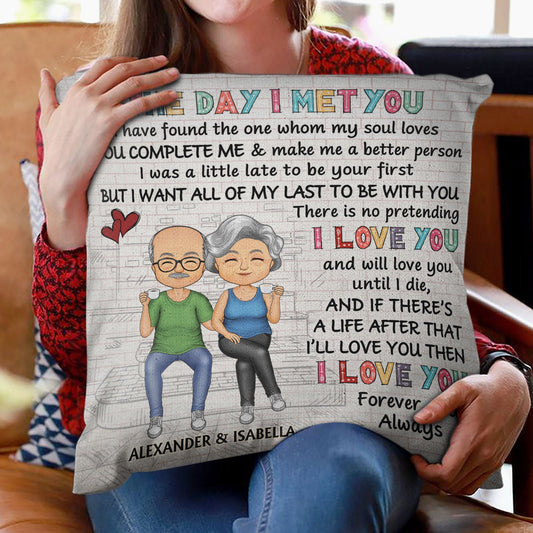 THE DAY I MET YOU
I have found the one whom my soul loves
YOU COMPLETE ME & make me a better person
I was a little late to be your first
BUT I WANT ALL OF MY LAST TO BE WITH YOU
There is no pretending
I LOVE YOU
and will love you
until I die,
AND IF THERE'S
A LIFE AFTER THAT
I'LL LOVE YOU THEN
I LOVE YOU
Forever
Always
ALEXANDER & ISABELLA